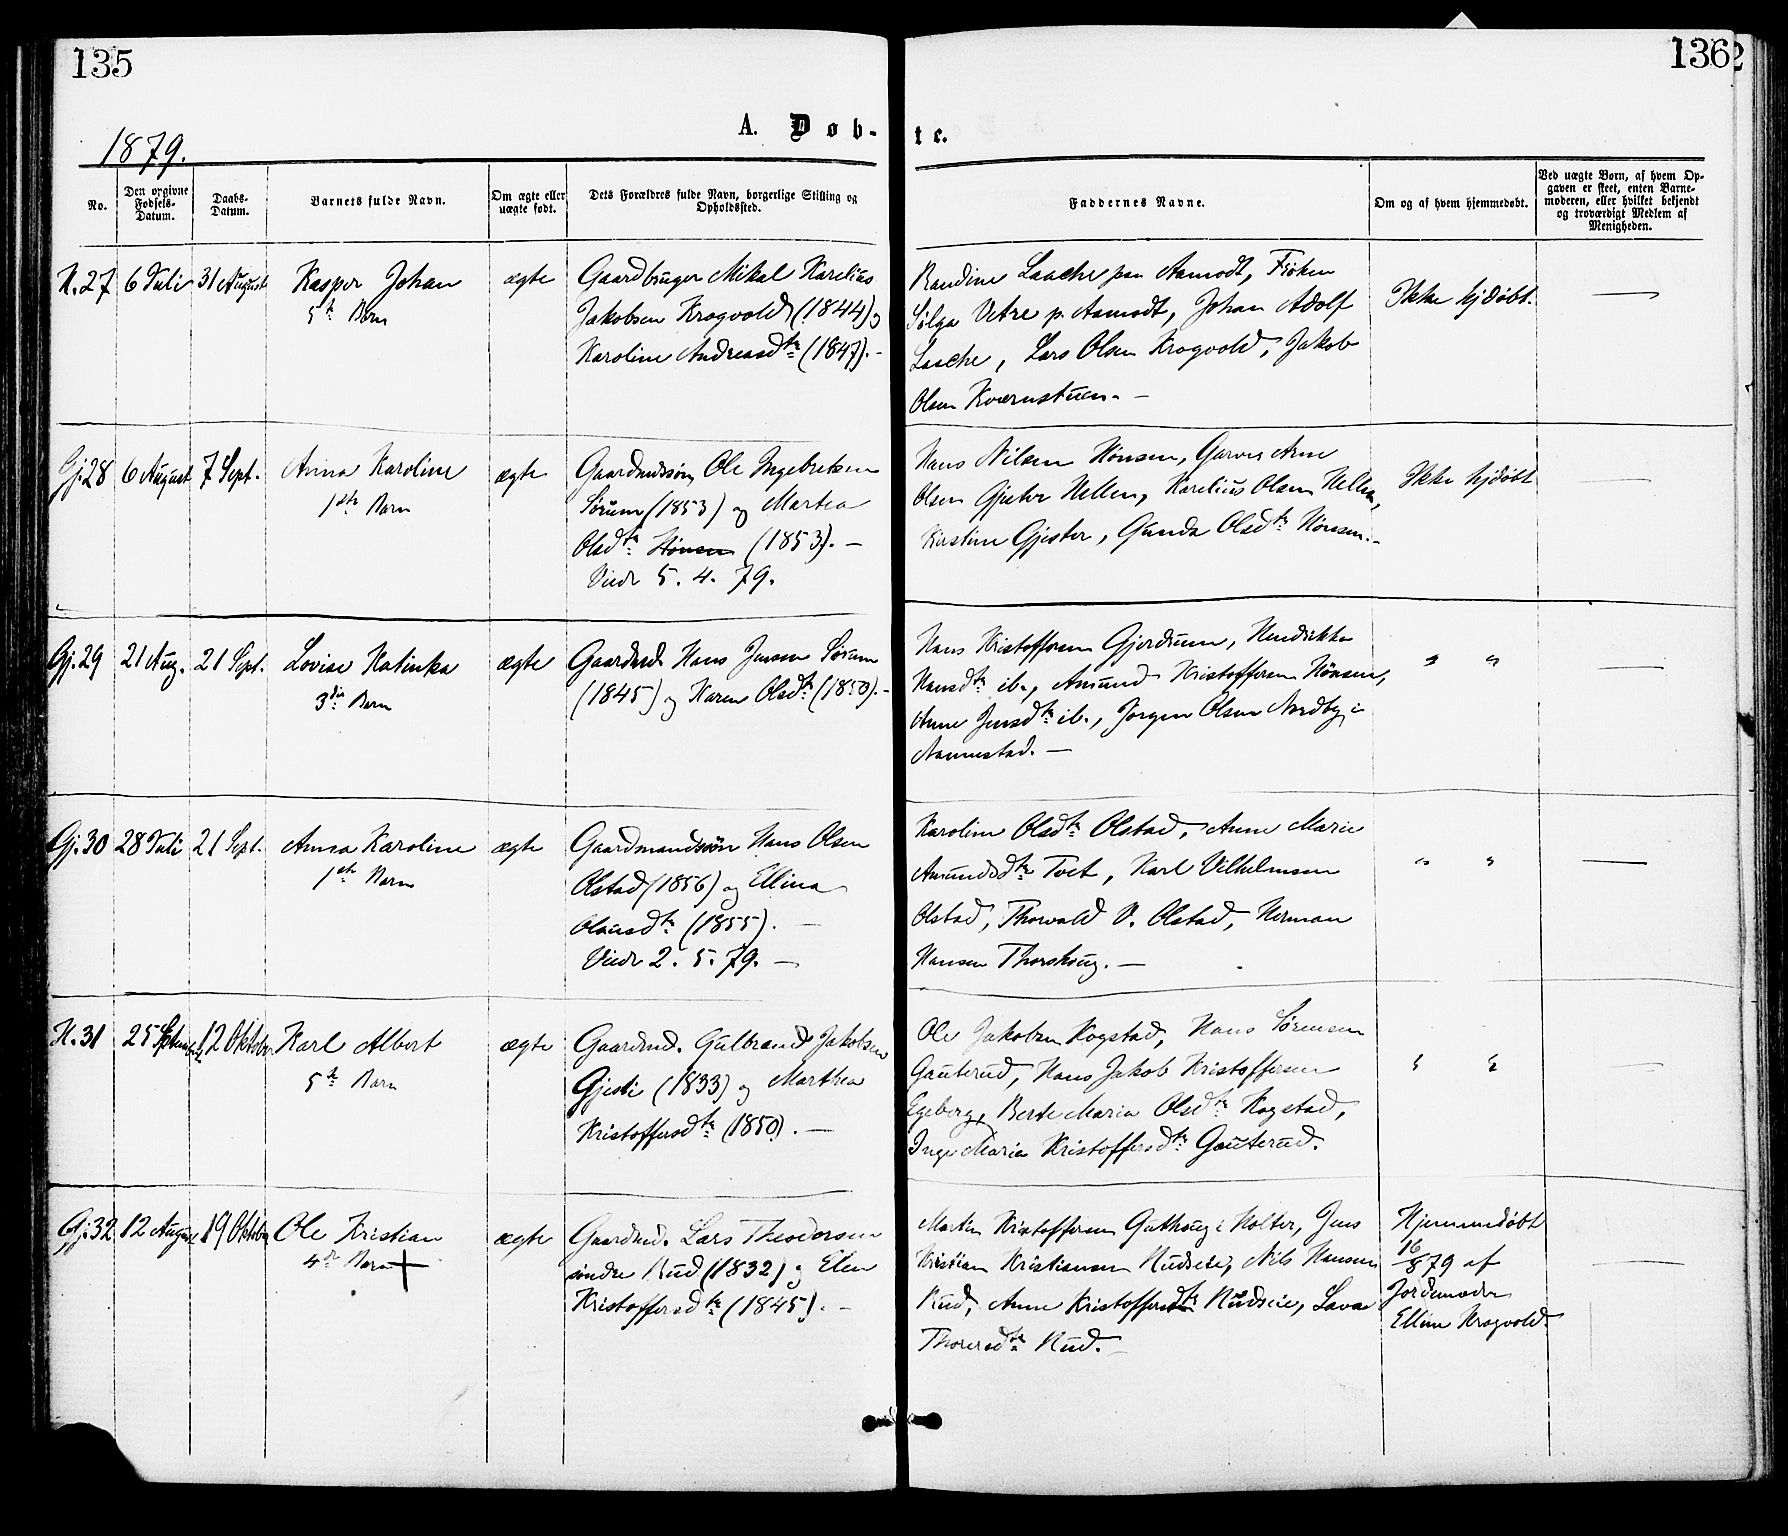 135
136
A. Døb-
te.
1879.
No.
Den opgivne Fødsels-Datum.
Daabs-Datum.
Barnets fulde Navn.
Om ægte eller uægte født.
Dets Forældres fulde Navn, borgerlige Stilling og Opholdssted.
Faddernes Navne.
Om og af hvem hjemmedøbt.
Ved uægte Børn, af hvem Opgaven er skeet, enten Barnemoderen, eller hvilket bekjendt og troværdigt Medlem af Menigheden.
H. 27
6 Juli
31 August
Kasper Johan
5te Barn
ægte
Gaardbruger Mikal Karelius
Jakobsen Krogvold (1844) og
Karoline Andreasdtr (1847). -
Randine Laache paa Aamodt, Frøken
Sølga Vetre p. Aamodt, Johan Adolf
Laache, Lars Olsen Krogvold, Jakob
Olsen Kværnstuen. -
Ikke hjdøbt.
Gj. 28
6 August
7 Sept.
Anna Karoline
1ste Barn
ægte
Gaardmdssøn Ole Ingebretsen
Sørum (1853) og Martea
Olsdtr Hønsen (1853). -
Viede 5. 4. 79.
Hans Nilsen Hønsen, Garver Arne
Olsen Gjester Hellen, Karelius Olsen Hellen,
Kirstine Gjester, Gunda Olsdtr Hønsen. -
Ikke hjdøbt
Gj. 29
21 Aug.
21 Sept.
Lovise Katinka
3die Barn
ægte
Gaardmd. Hans Jensen Sørum
(1845) og Karen Olsdtr (1850). -
Hans Kristoffersen Gjordrum, Hendrikke
Hansdtr ib., Amund Kristoffersen Hønsen,
Anne Jensdtr ib., Jørgen Olsen Nordby i
Nannestad. -
" "
Gj. 30
28 Juli
21 Sept.
Anna Karoline
1ste Barn
ægte
Gaardmandssøn Hans Olsen
Olstad (1856) og Ellina
Olausdtr (1855). -
Viede 2. 5. 79. -
Karoline Olsdtr Olstad, Anne Marie
Amundsdtr Tvet, Karl Vilhelmsen
Olstad, Thorvald V. Olstad, Herman
Hansen Thorshaug. -
" "
H. 31
25 September
12 Oktober
Karl Albert
5te Barn
ægte
Gaardmd. Gulbrand Jakobsen
Gjesti (1833) og Marthea
Kristoffersdtr (1850). -
Ole Jakobsen Kogstad, Hans Sørensen
Gauterud, Hans Jakob Kristoffersen
Egeberg, Berte Maria Olsdtr Kogstad,
Inge Maria Kristoffersdtr Gauterud.
" "
Gj. 32
12 August
19 Oktober
Ole Kristian
4de Barn
ægte
Gaardmd. Lars Theodorsen
søndre Rud (1832) og Elen
Kristoffersdtr (1845). -
Martin Kristoffersen Guthaug i Holter, Jens
Kristian Kristiansen Rudseie, Nils Hansen
Rud, Anne Kristoffersdtr Rudseie, Lava
Thoresdtr Rud. -
Hjemmedøbt
16/8 79 af
Jordemoder
Elline Krogvold.